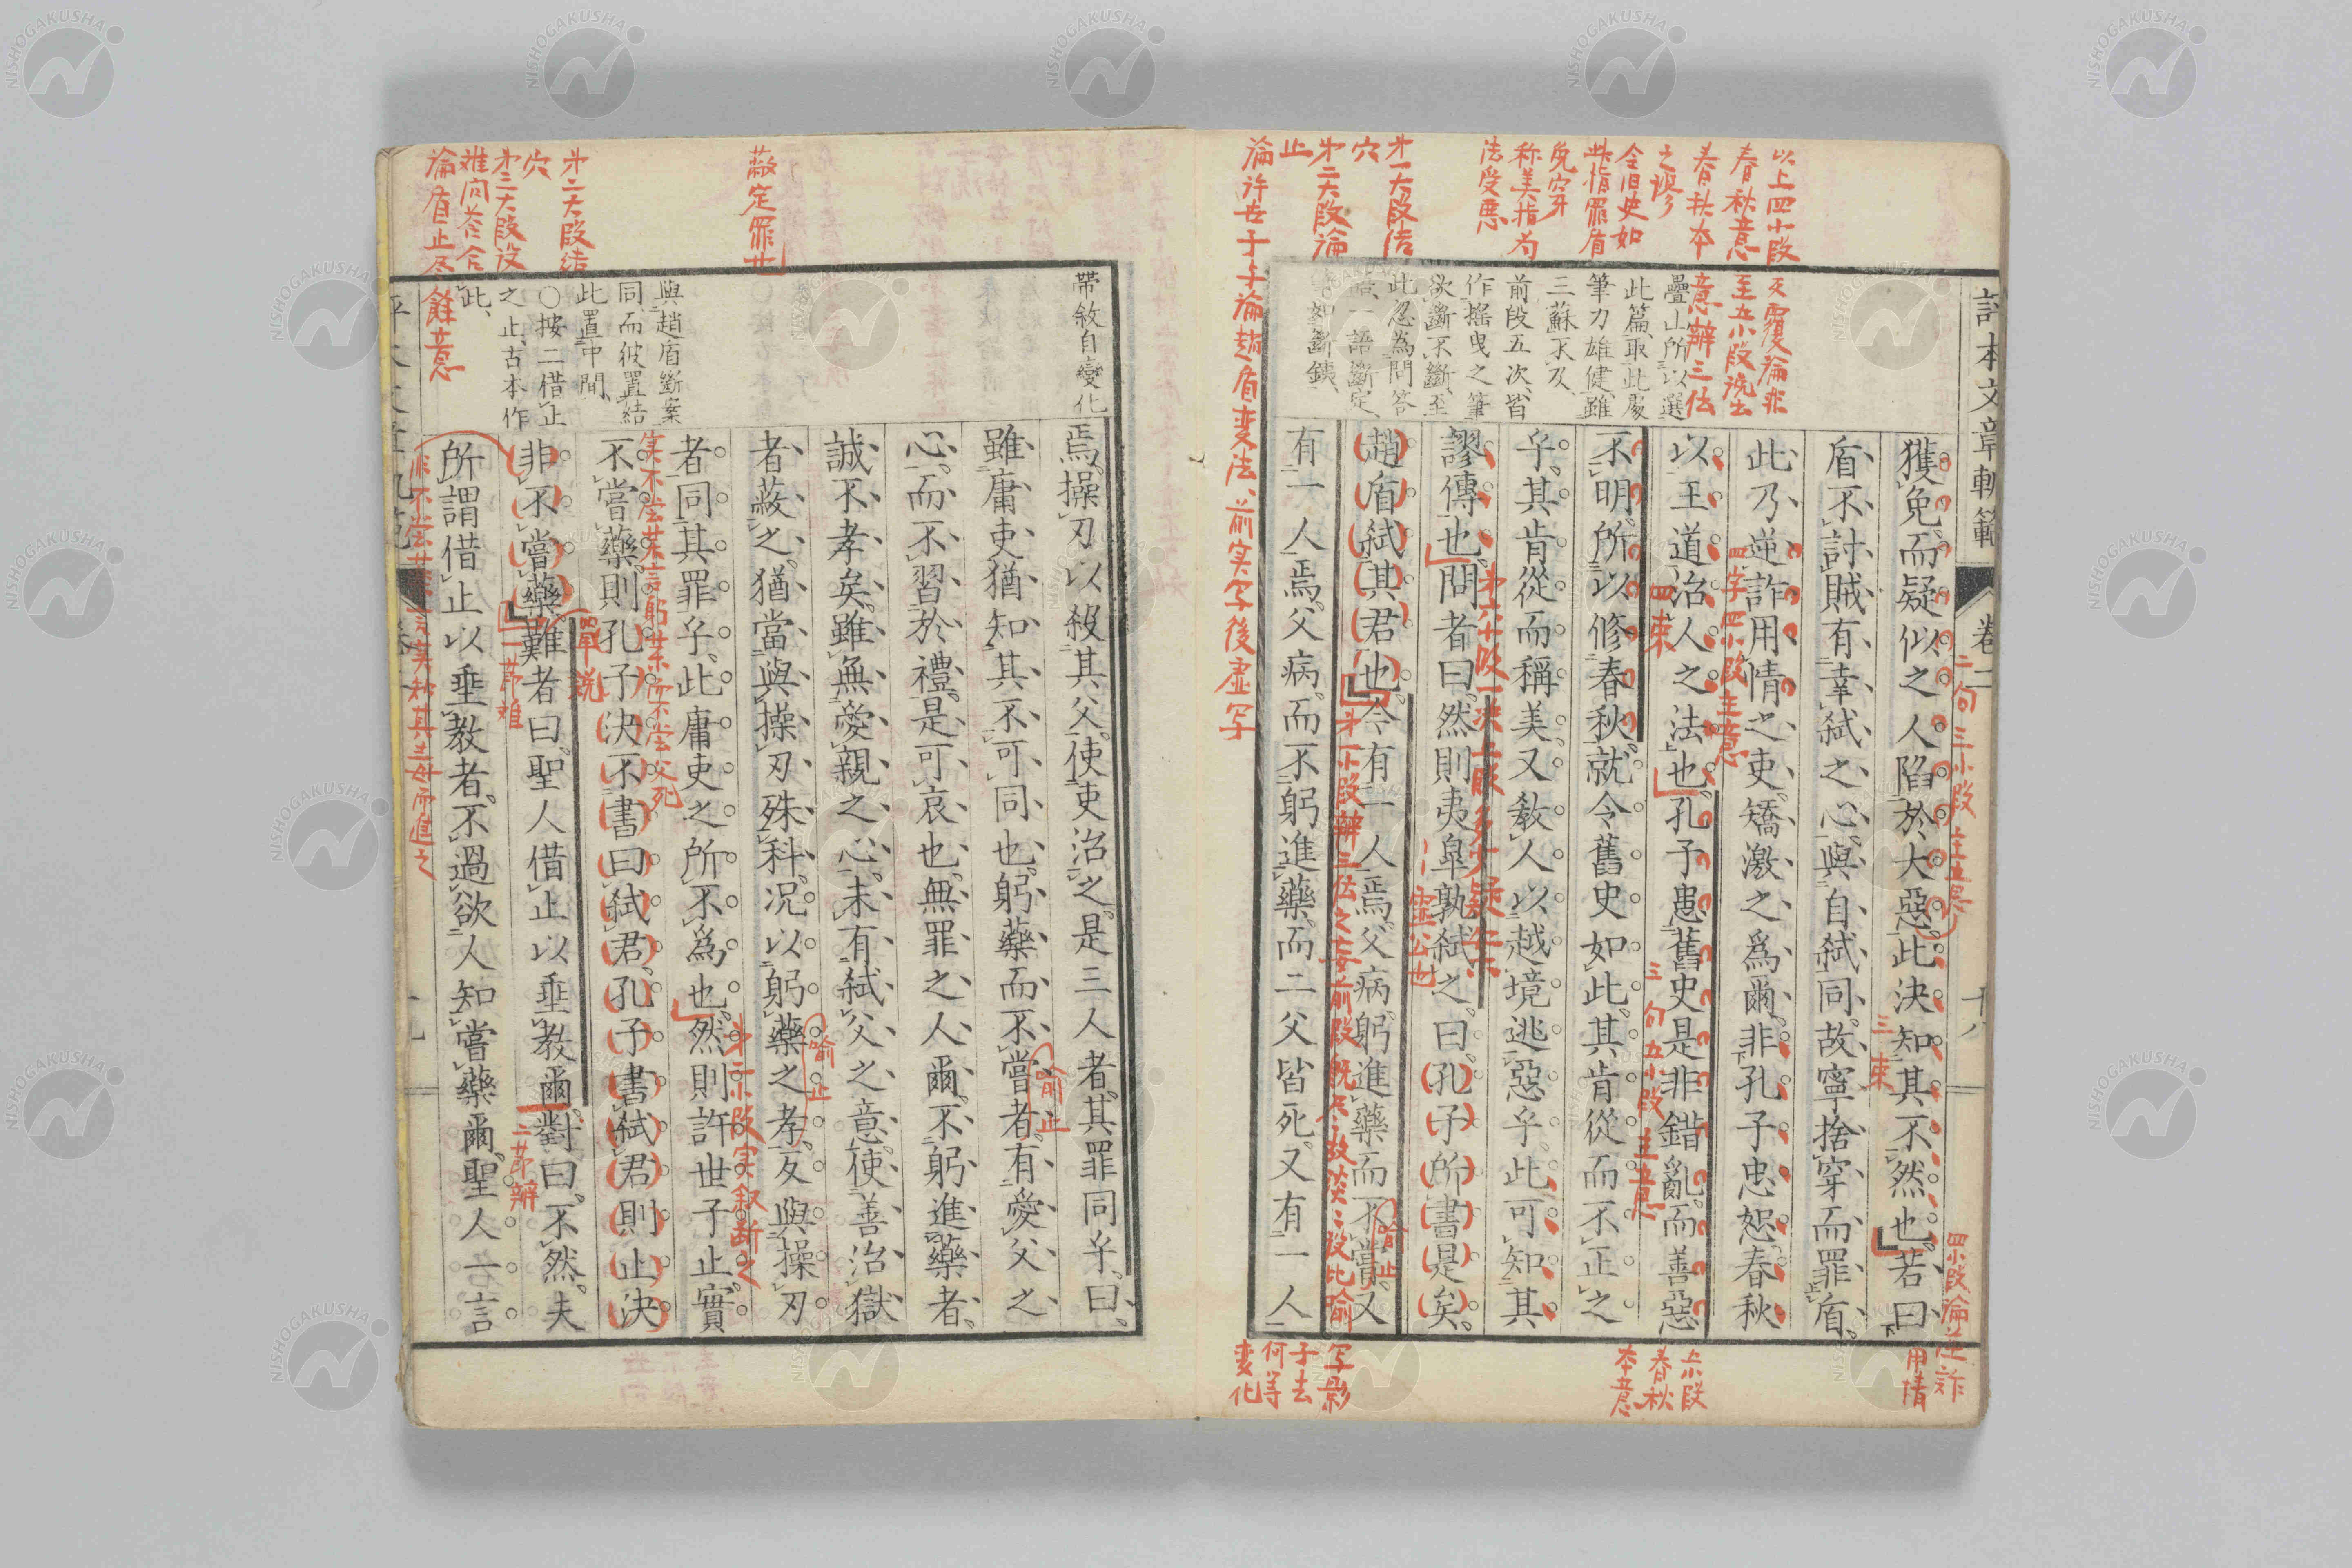 評本文章軌範
卷二
十八
獲免而疑似之人陷於大惡此決知其不然也若曰
盾不討賊有幸弑之心與自弑同故寧捨穿而罪盾
此乃逆詐用情之吏矯激之爲爾非孔子忠恕春秋
以王道治人之法也孔子患舊史是非錯亂而善惡
不明所以修春秋就令舊史如此其肯從而不正之
乎其肯從而稱美又敎人以越境逃惡乎此可知其
謬傳也問者曰然則夷皐孰弑之曰孔子所書是矣
趙盾弑其君也今有一人焉父病躬進藥而不嘗又
有一人焉父病而不躬進藥而二父皆死又有一人
疊山所以選
此篇取此處
筆力雄健雖
三蘇不及
前段五次皆
作搖曳之筆
欲斷不斷至
此忽為問答
語一語斷定
如斷鐵
以上四小段
春秋意
春秋本
之謬
令旧史如
此指罪盾
免穿
称美指为
法受悪
又覆論非
至五小段説去
意辯三伝
才一大段結
穴
才二大段論
止
論許世子与論趙盾変法前実写後虚写
二句三小段主意
三束
四小段論逆詐
用情
四字四小段主意
四束
三句五小段主意
六小段
春秋
本意
霊公也
喻止
写影
子去
何等
変化
焉操刃以殺其父使吏治之是三人者其罪同乎曰
雖庸吏猶知其不可同也躬藥而不嘗者有愛父之
心而不習於禮是可哀也無罪之人爾不躬進藥者
誠不孝矣雖無愛親之心未有弑父之意使善治獄
者蔽之猶當與操刃殊科况以躬藥之孝反與操刃
者同其罪乎此庸吏之所不為也然則許世子止實
不嘗藥則孔子決不書曰弑君孔子書弑君則止決
非不嘗藥難者曰聖人借止以垂教爾對曰不然夫
所謂借止以垂教者不過欲人知嘗藥爾聖人一言
帶敘自變化
與趙盾斷案
同而彼置結
此置中間
○按二借止
之止古本作
此
蔽定罪也
才二大段結
穴
才三大段設
难問答合
論盾止尽
餘意
喻止
喻止
才二小段実叙断之
単説
一節难
二節辯